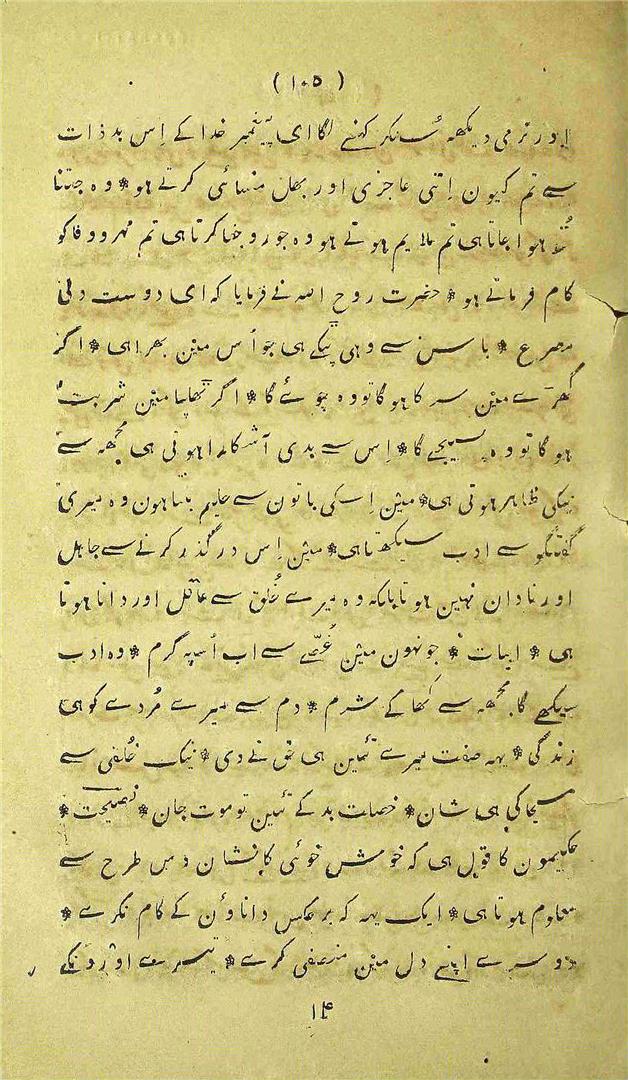 ( ۱۰۵ )
اور نرمی دیکھہ سُنکر کہنے لگا ای پیغمبر خدا کے اِس بد ذات
سے تم کیون اِتنی عاجزی اور بھل منسائی کرتے ہو * وہ جتنا
تُند ہوا جاتا ہی تم ملایم ہوتے ہو وہ جور و جفا کرتا ہی تم مہر و وفا کو
کام فرماتے ہو * حضرت روح اللہ نے فرمایا کہ ای دوست دلی
مصرع * باسن سے وہی ٹپکے ہی جو اُس مین بھرا ہی * اگر
گھڑے مین سرکا ہوگا تو وہ چوئے گا * اگر ٹھلیا مین شربت
ہوگا تو وہ پسیجے گا * اِس سے بدی آشکارا ہوتی ہی مجھہ سے
نیکی ظاہر ہوتی ہی * مین اِسکی باتون سے حلیم بنتا ہون وہ میری
گفتگو سے ادب سیکھتا ہی * مین اِس درگذر کرنے سے جاہل
اور نادان نہین ہوتا بلکہ وہ میرے خُلق سے عاقل اور دانا ہوتا
ہی * ابیات * جو نہون مین غُصّے سے اب اُسپہ گرم * وہ ادب
سیکھے گا مجھہ سے کھا کے شرم * دم سے میرے مُردے کو ہی
زندگی * یہہ صفت میرے تئین ہی حق نے دی * نیک خُلقی سے
مسیحا کی ہی شان * خصلت بد کے تئین تو موت جان * نصیحت *
حکیمون کا قول ہی کہ خوش خوئی کا نشان دس طرح سے
معلوم ہوتا ہی * ایک یہہ کہ برعکس داناؤن کے کام نکرے *
دوسرے اپنے دل مین منصفی کرے * تیسرے اورونکے
۱۴